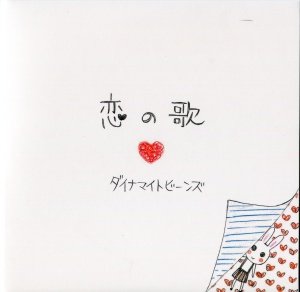 恋の歌
ダイナマイトビーンズ